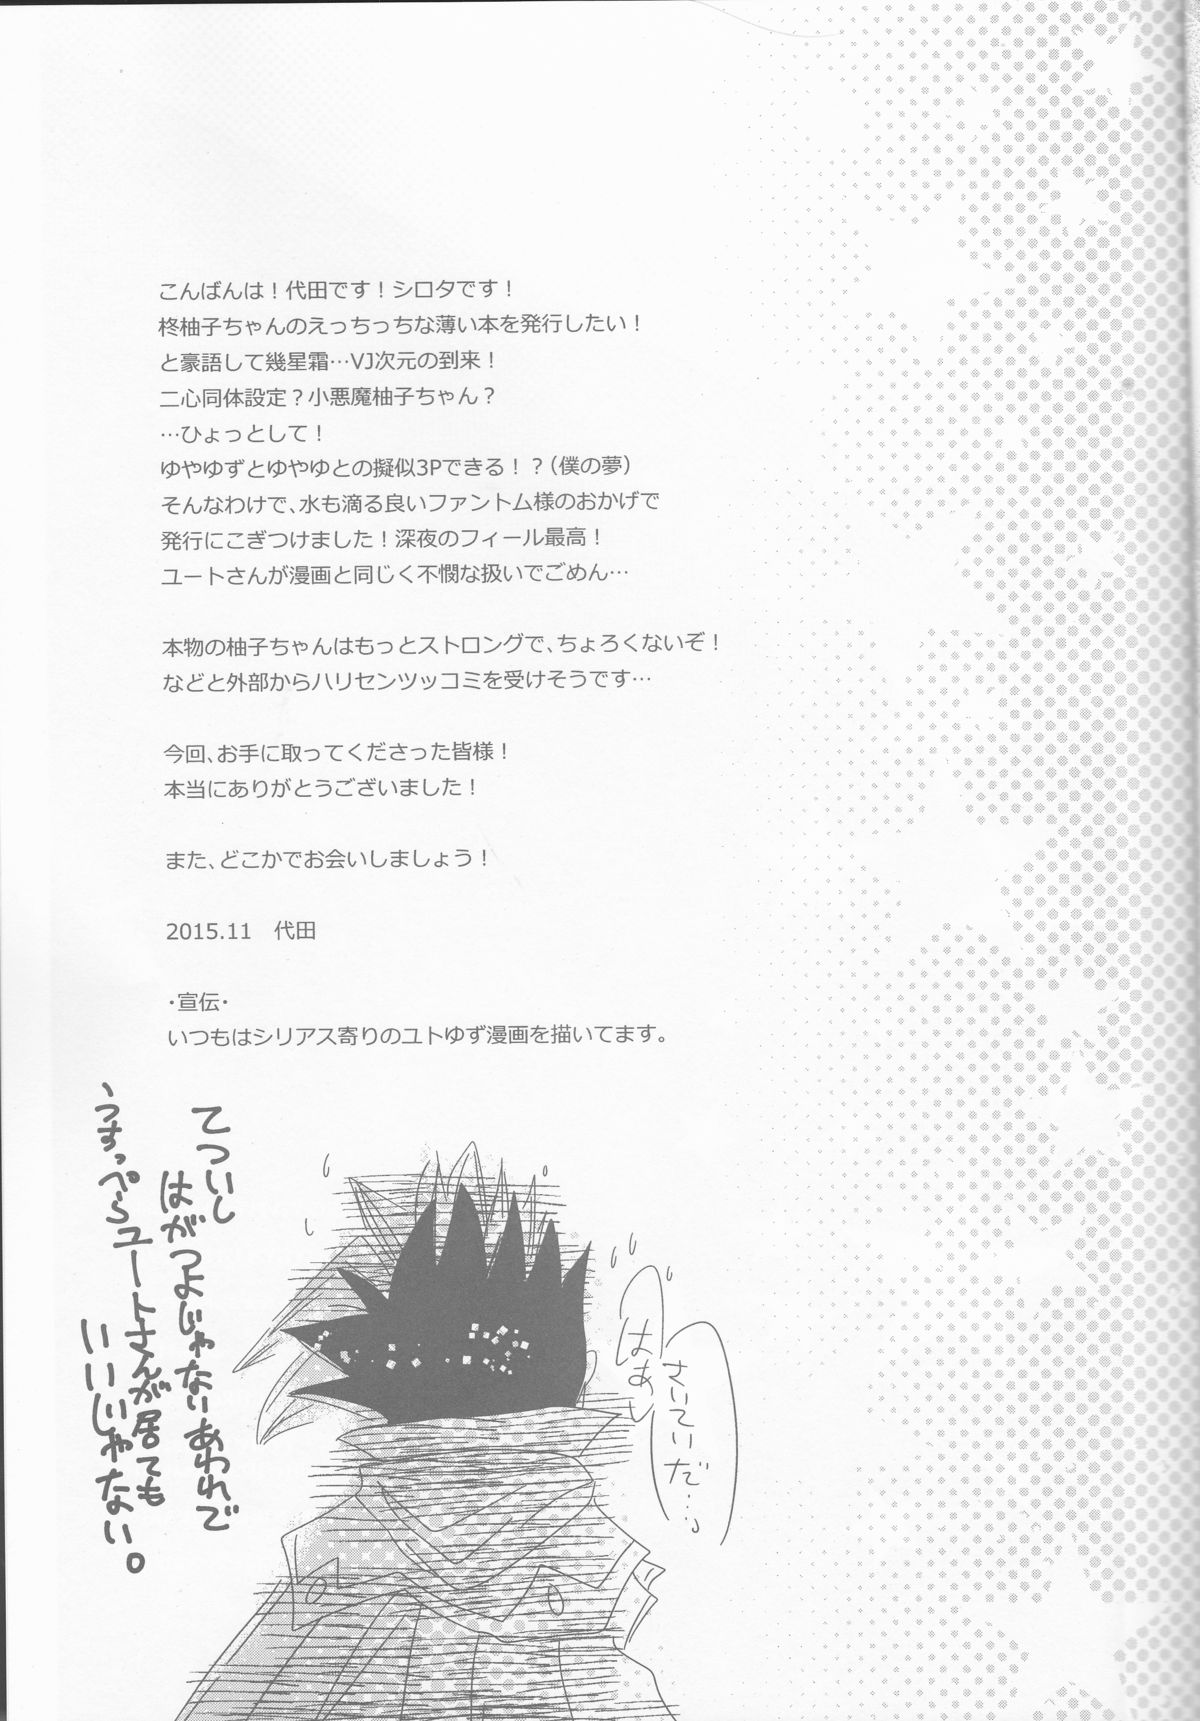 こんばんは！代田です！シロタです！
柊柚子ちゃんのえっちっちな薄い本を発行したい！
と豪語して幾星霜…VJ次元の到来！
二心同体設定？小悪魔柚子ちゃん？
…ひょっとして！
ゆやゆずとゆやゆとの擬似3Pできる！？（僕の夢）
そんなわけで、水も滴る良いファントム様のおかげで
発行にこぎつけました！深夜のフィール最高！
ユートさんが漫画と同じく不憫な扱いでごめん…
本物の柚子ちゃんはもっとストロングで、ちょろくないぞ！
などと外部からハリセンツッコミを受けそうです…
今回、お手に取ってくださった皆様！
本当にありがとうございました！
また、どこかでお会いしましょう！
2015.11　代田
・宣伝・
いつもはシリアス寄りのユトゆず漫画を描いてます。
さいていだ…。
はあ
てついし
はがつよじゃないあわれで
うすっぺらユートさんが居ても
いいじゃない。